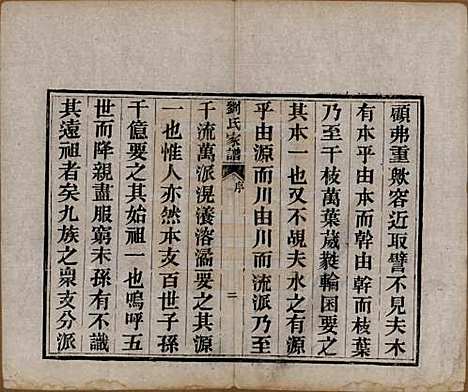 顧弗重歟容近取譬不見夫木
有本乎由本而幹由幹而枝葉
乃至千枝萬葉葳蕤輪囷要之
其本一也又不覩夫水之有源
乎由源而川由川而流派乃至
劉氏家譜 序 二
千流萬派滉瀁溶潏要之其源
一也惟人亦然本支百世子孫
千億要之其始祖一也嗚呼五
世而降親盡服窮末孫有不識
其遠祖者矣九族之衆支分派